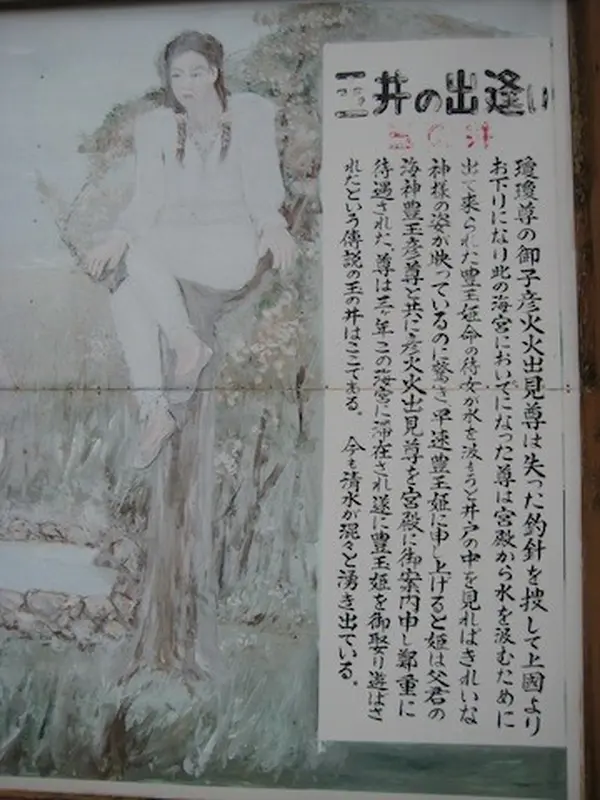 井の出逢い
の井
瓊瓊尊の御子彦火火出見尊は失った釣針を捜して上國より
お下りになり此の海宮においでになった尊は宮殿から水を汲むために
出て来られた豊玉姫命の待女が水を汲もうと井戸の中を見ればきれいな
神様の姿が映っているのに驚き早速豊玉姫に申し上げると姫は父君の
海神豊玉彦尊と共に彦火火出見尊を宮殿に御案内申し鄭重に
待遇された、尊は三ヶ年この海宮に滞在され遂に豊玉姫を御娶り遊ばさ
れたという傳説の玉の井はここである。 今も清水が混々と湧き出ている。